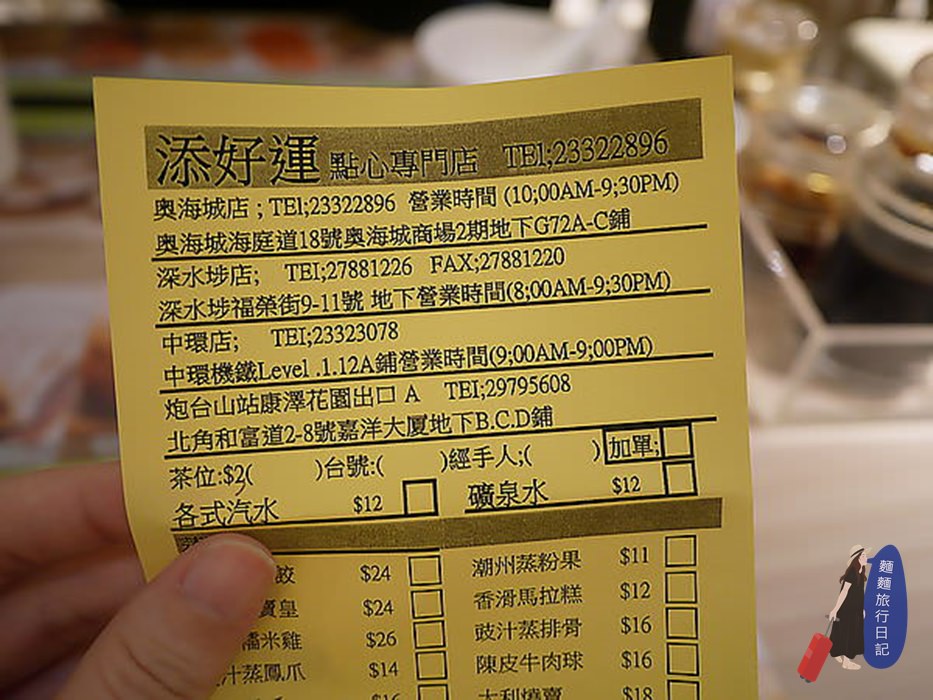 添好運 點心專門店 TEl;23322896
奧海城店 ; TEl;23322896 營業時間 (10;00AM-9;30PM)
奧海城海庭道18號奧海城商場2期地下G72A-C鋪
深水埗店; TEI;27881226 FAX;27881220
深水埗福榮街9-11號 地下營業時間(8;00AM-9;30PM)
中環店; TEI;23323078
中環機鐵Level .1.12A鋪營業時間(9;00AM-9;00PM)
炮台山站康澤花園出口 A TEI;29795608
北角和富道2-8號嘉洋大廈地下B.C.D鋪
茶位:$2( )台號:( )經手人;( ) 加單;
各式汽水 $12 礦泉水 $12
餃 $24 潮州蒸粉果 $11
賣皇 $24 香滑馬拉糕 $12
米雞 $26 豉汁蒸排骨 $16
汁蒸鳳爪 $14 陳皮牛肉球 $16
$16 大利燒賣 $18
麵麵旅行日記